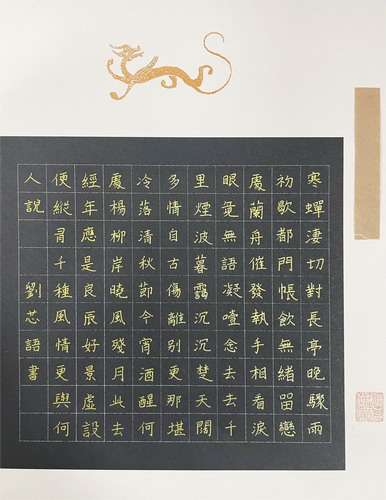 寒蟬淒切對長亭晚驟雨
初歇都門帳飲無緒留戀
處蘭舟催發執手相看淚
眼竟無語凝噎念去去千
里煙波暮靄沉沉楚天闊
多情自古傷離別更那堪
冷落清秋節今宵酒醒何
處楊柳岸曉風殘月此去
經年應是良辰好景虛設
便縱有千種風情更與何
人說 劉芯語書